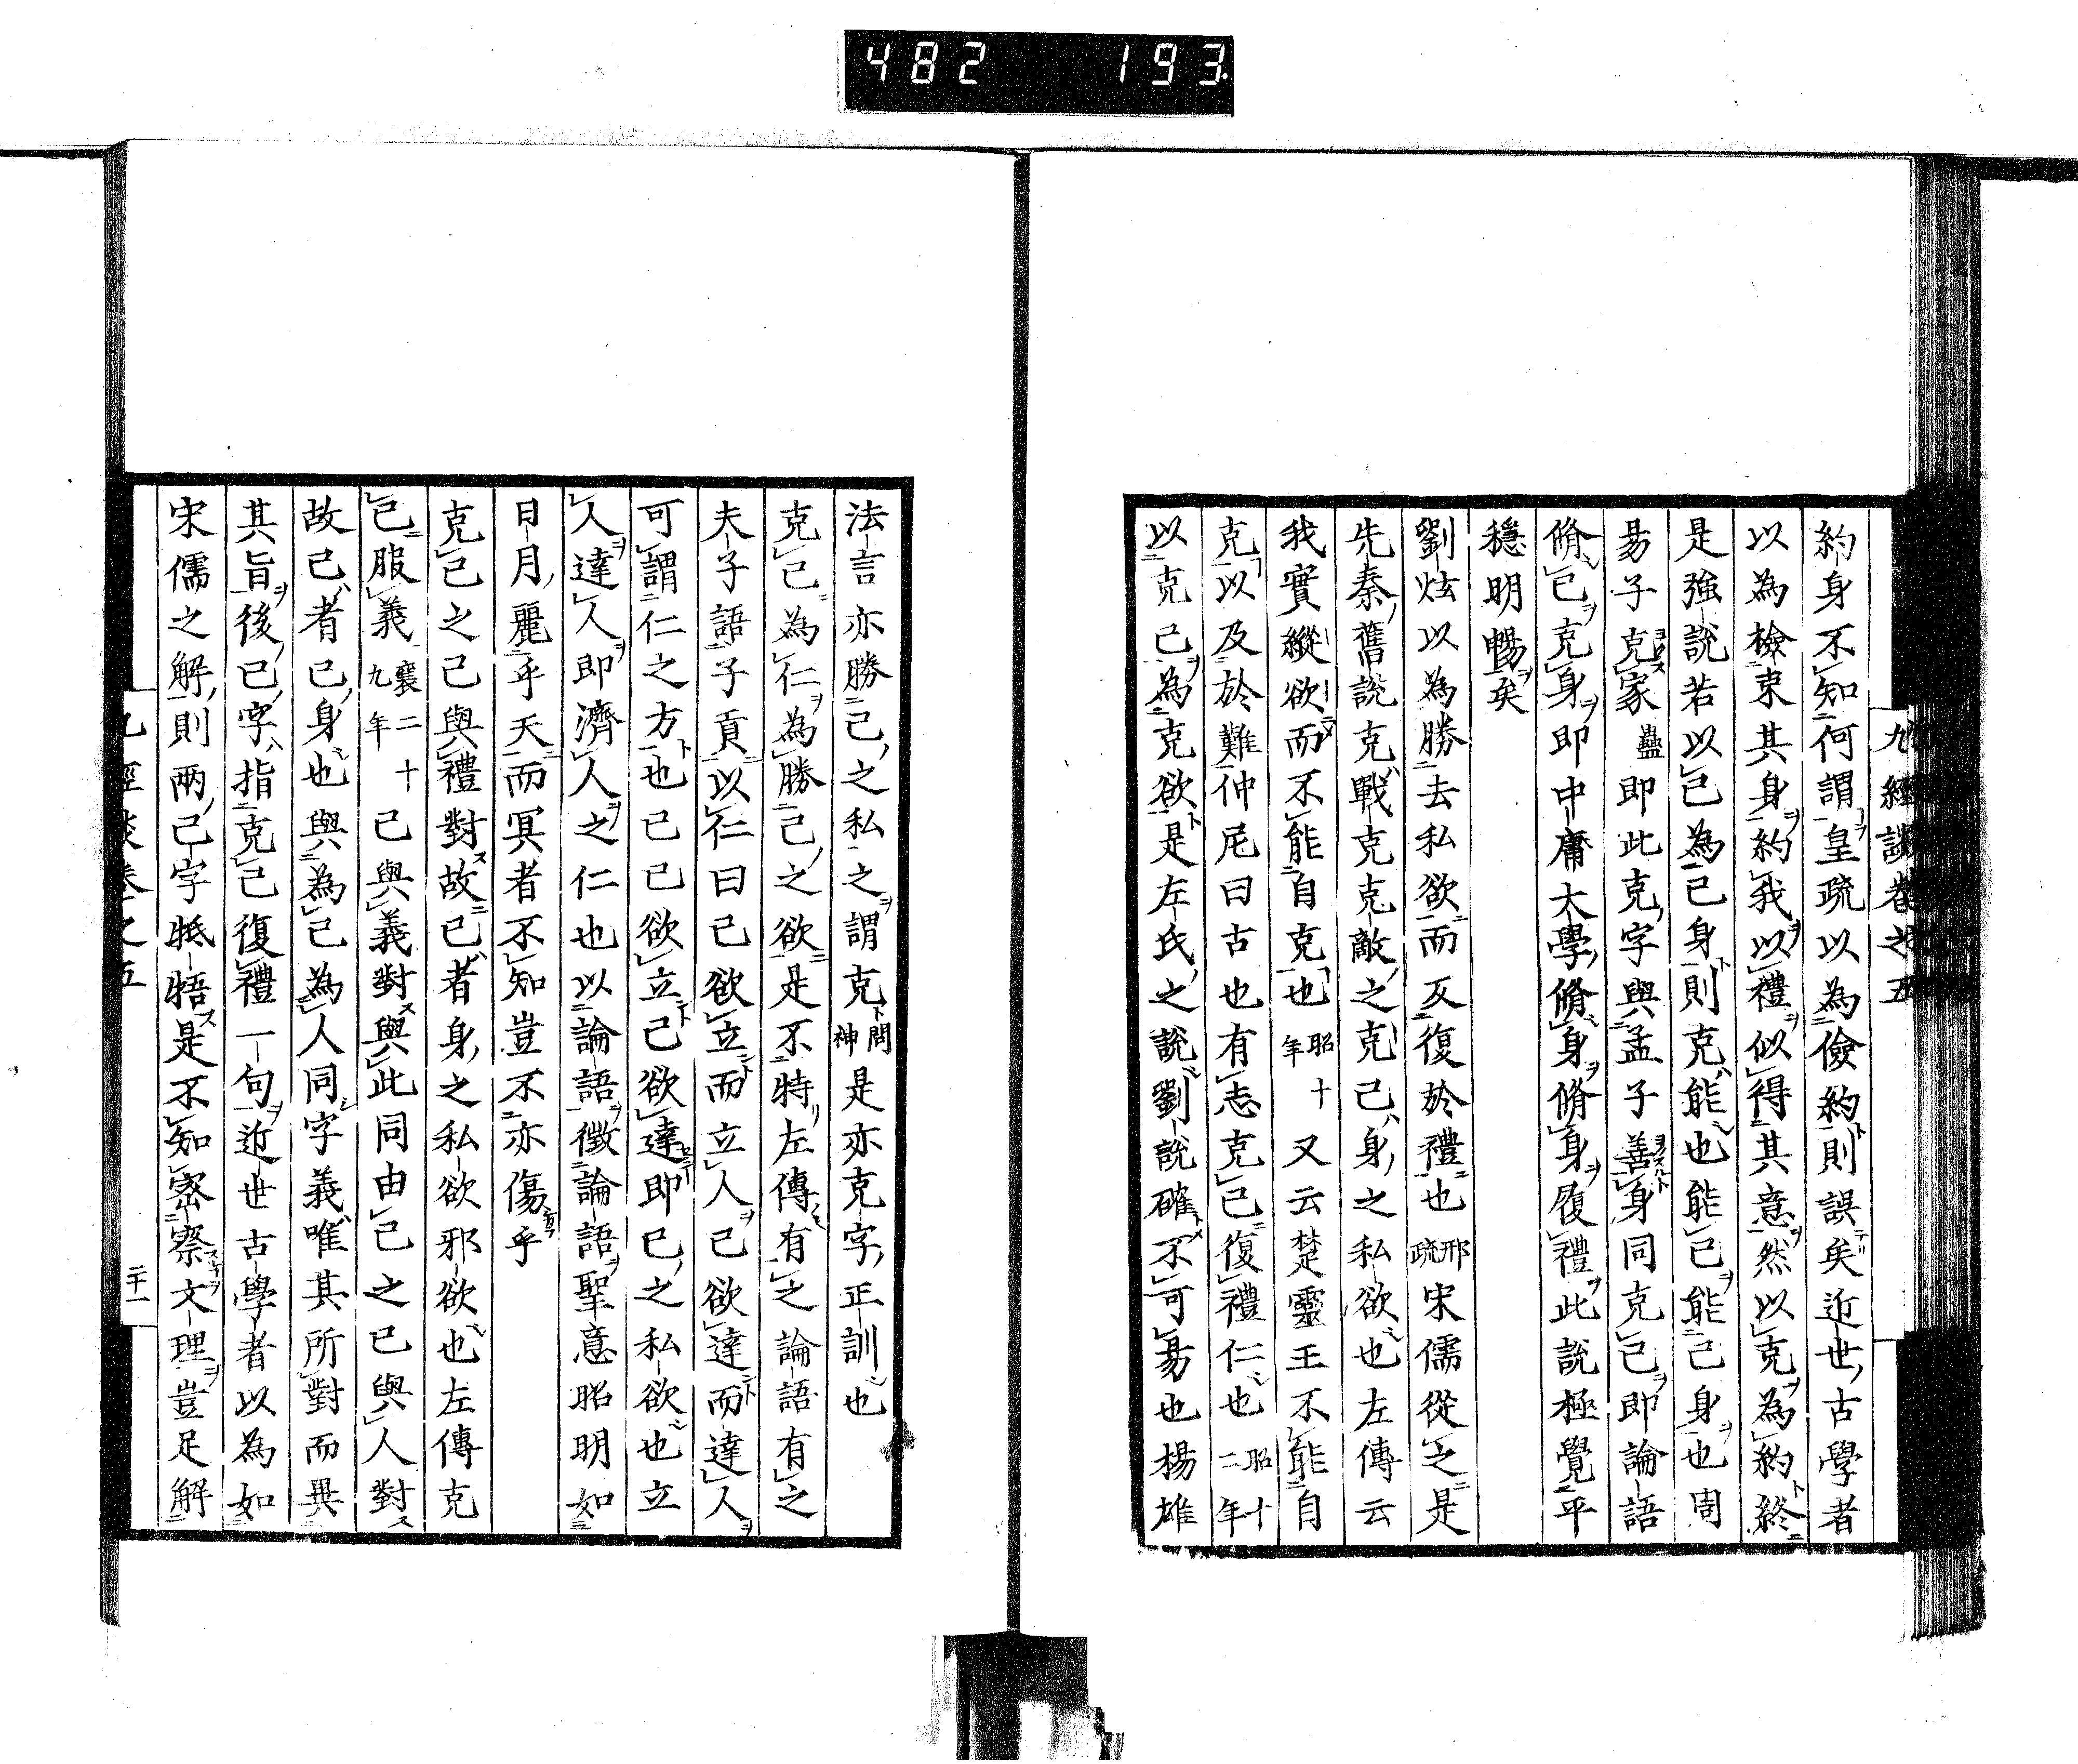 482 193
九經談卷之五
約身不知何謂皇疏以為儉約則誤矣近世古學者
以為檢束其身約我以禮似得其意然以克為約終
是強說若以己為己身則克能也能己能己身也周
昜子克家蠱即此克字與孟子善身同克己即論語
脩己克身即中庸大學脩身脩身履禮此說極覺平
穩明暢矣
劉炫以為勝去私欲而反復於禮也邢疏宋儒從之是
先秦舊說克戰克克敵之克己身之私欲也左傳云
我實縱欲而不能自克也昭十年又云楚靈王不能自
克以及於難仲尼曰古也有志克己復禮仁也昭十二年
以克己為克欲是左氏之說劉說確不可昜也楊雄
法言亦勝己之私之謂克問神是亦克字正訓也
克己為仁為勝己之欲是不特左傳有之論語有之
夫子語子貢以仁曰己欲立而立人己欲達而達人
可謂仁之方也已己欲立己欲達即己之私欲也立
人達人即濟人之仁也以論語徵論語聖意昭明如
日月麗乎天而冥者不知豈不亦傷乎
克己之己與禮對故己者身之私欲邪欲也左傳克
己服義襄二十九年己與義對與此同由己之己與人對
故己者己身也與為己為人同字義唯其所對而異
其旨後己字指克己復禮一句近世古學者以為如
宋儒之解則兩己字牴牾是不知密察文理豈足解
九經談卷之五
二十一